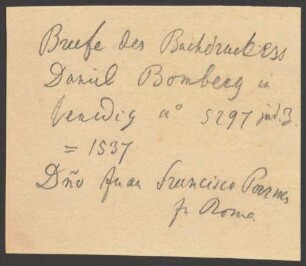 Briefe des Buchdruckers
Daniel Bomberg in
Venedig aº 5297 jüd. Z.
= 1537
Dño Juan Francisco
in Roma